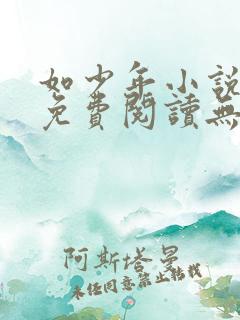 如少年小說
免費閱讀無
阿斯塔曼
未经同意禁止转载